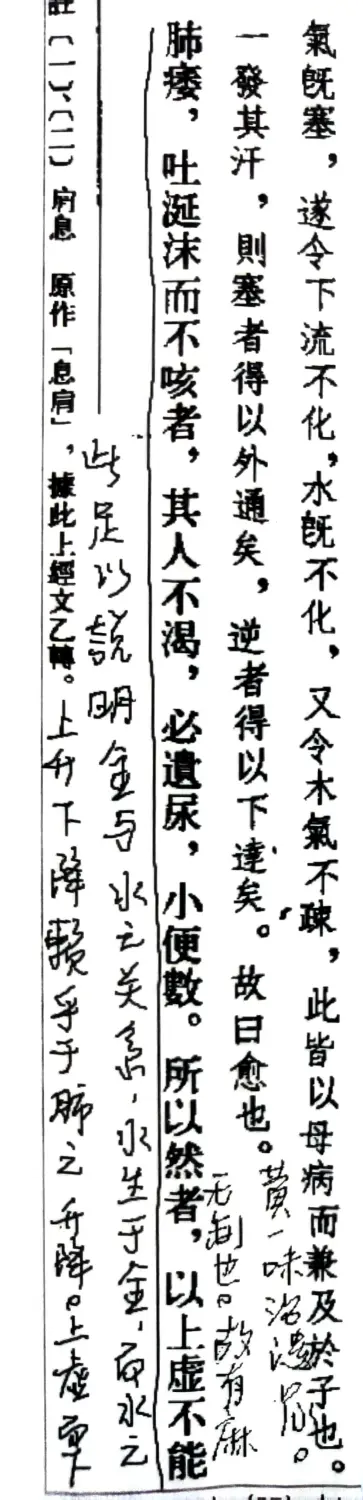 氣旣塞，遂令下流不化，水旣不化，又令木氣不疎，此皆以母病而兼及於子也。
一發其汗，則塞者得以外通矣，逆者得以下達矣。故曰愈也。
无制也。故有麻
黄一味治遗尿。
肺痿，吐涎沫而不咳者，其人不渴，必遺尿，小便數。所以然者，以上虛不能
此足以説明金与水之关系，水生于金，而水之
上升下降赖乎于肺之升降。上虚
註〔一〕、〔二〕肩息　原作「息肩」，據此上經文乙轉。